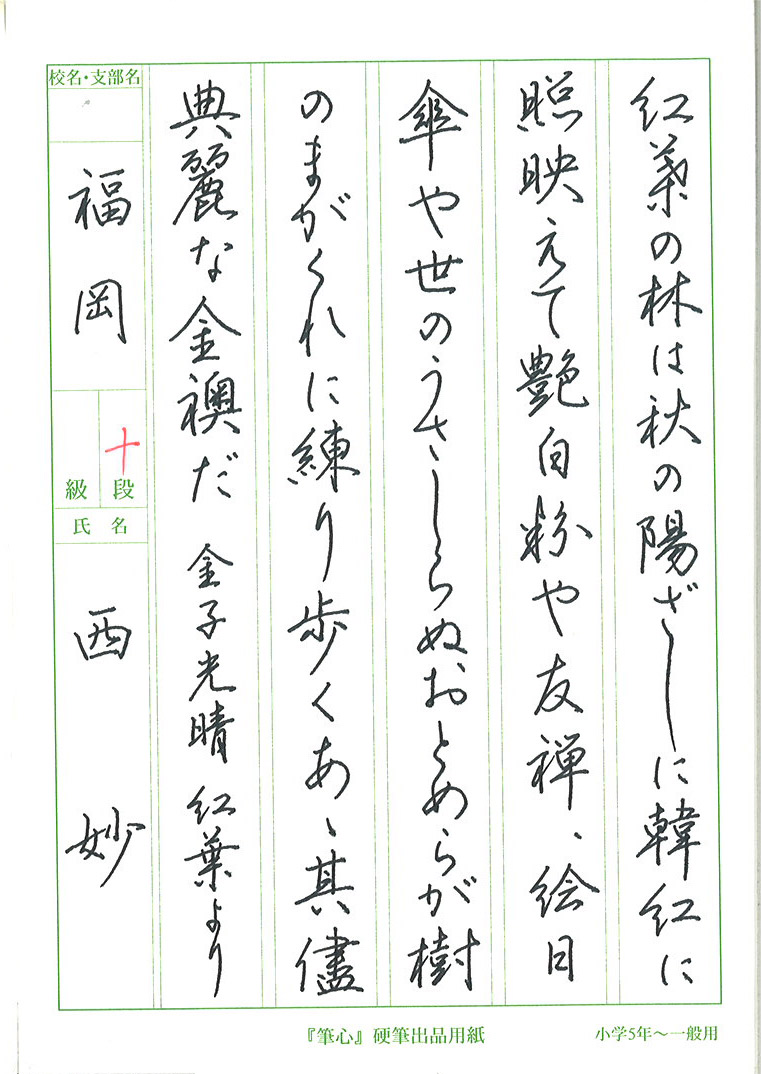 紅葉の林は秋の陽ざしに韓紅に
照映えて艶白粉や友禅、絵日
傘や世のうさしらぬおとめらが樹
のまがくれに練り歩くあゝ其儘
典麗な金襖だ 金子光晴 紅葉より
校名・支部名
福岡
十
段
級
氏名
西妙
『筆心』硬筆出品用紙
小学5年〜一般用